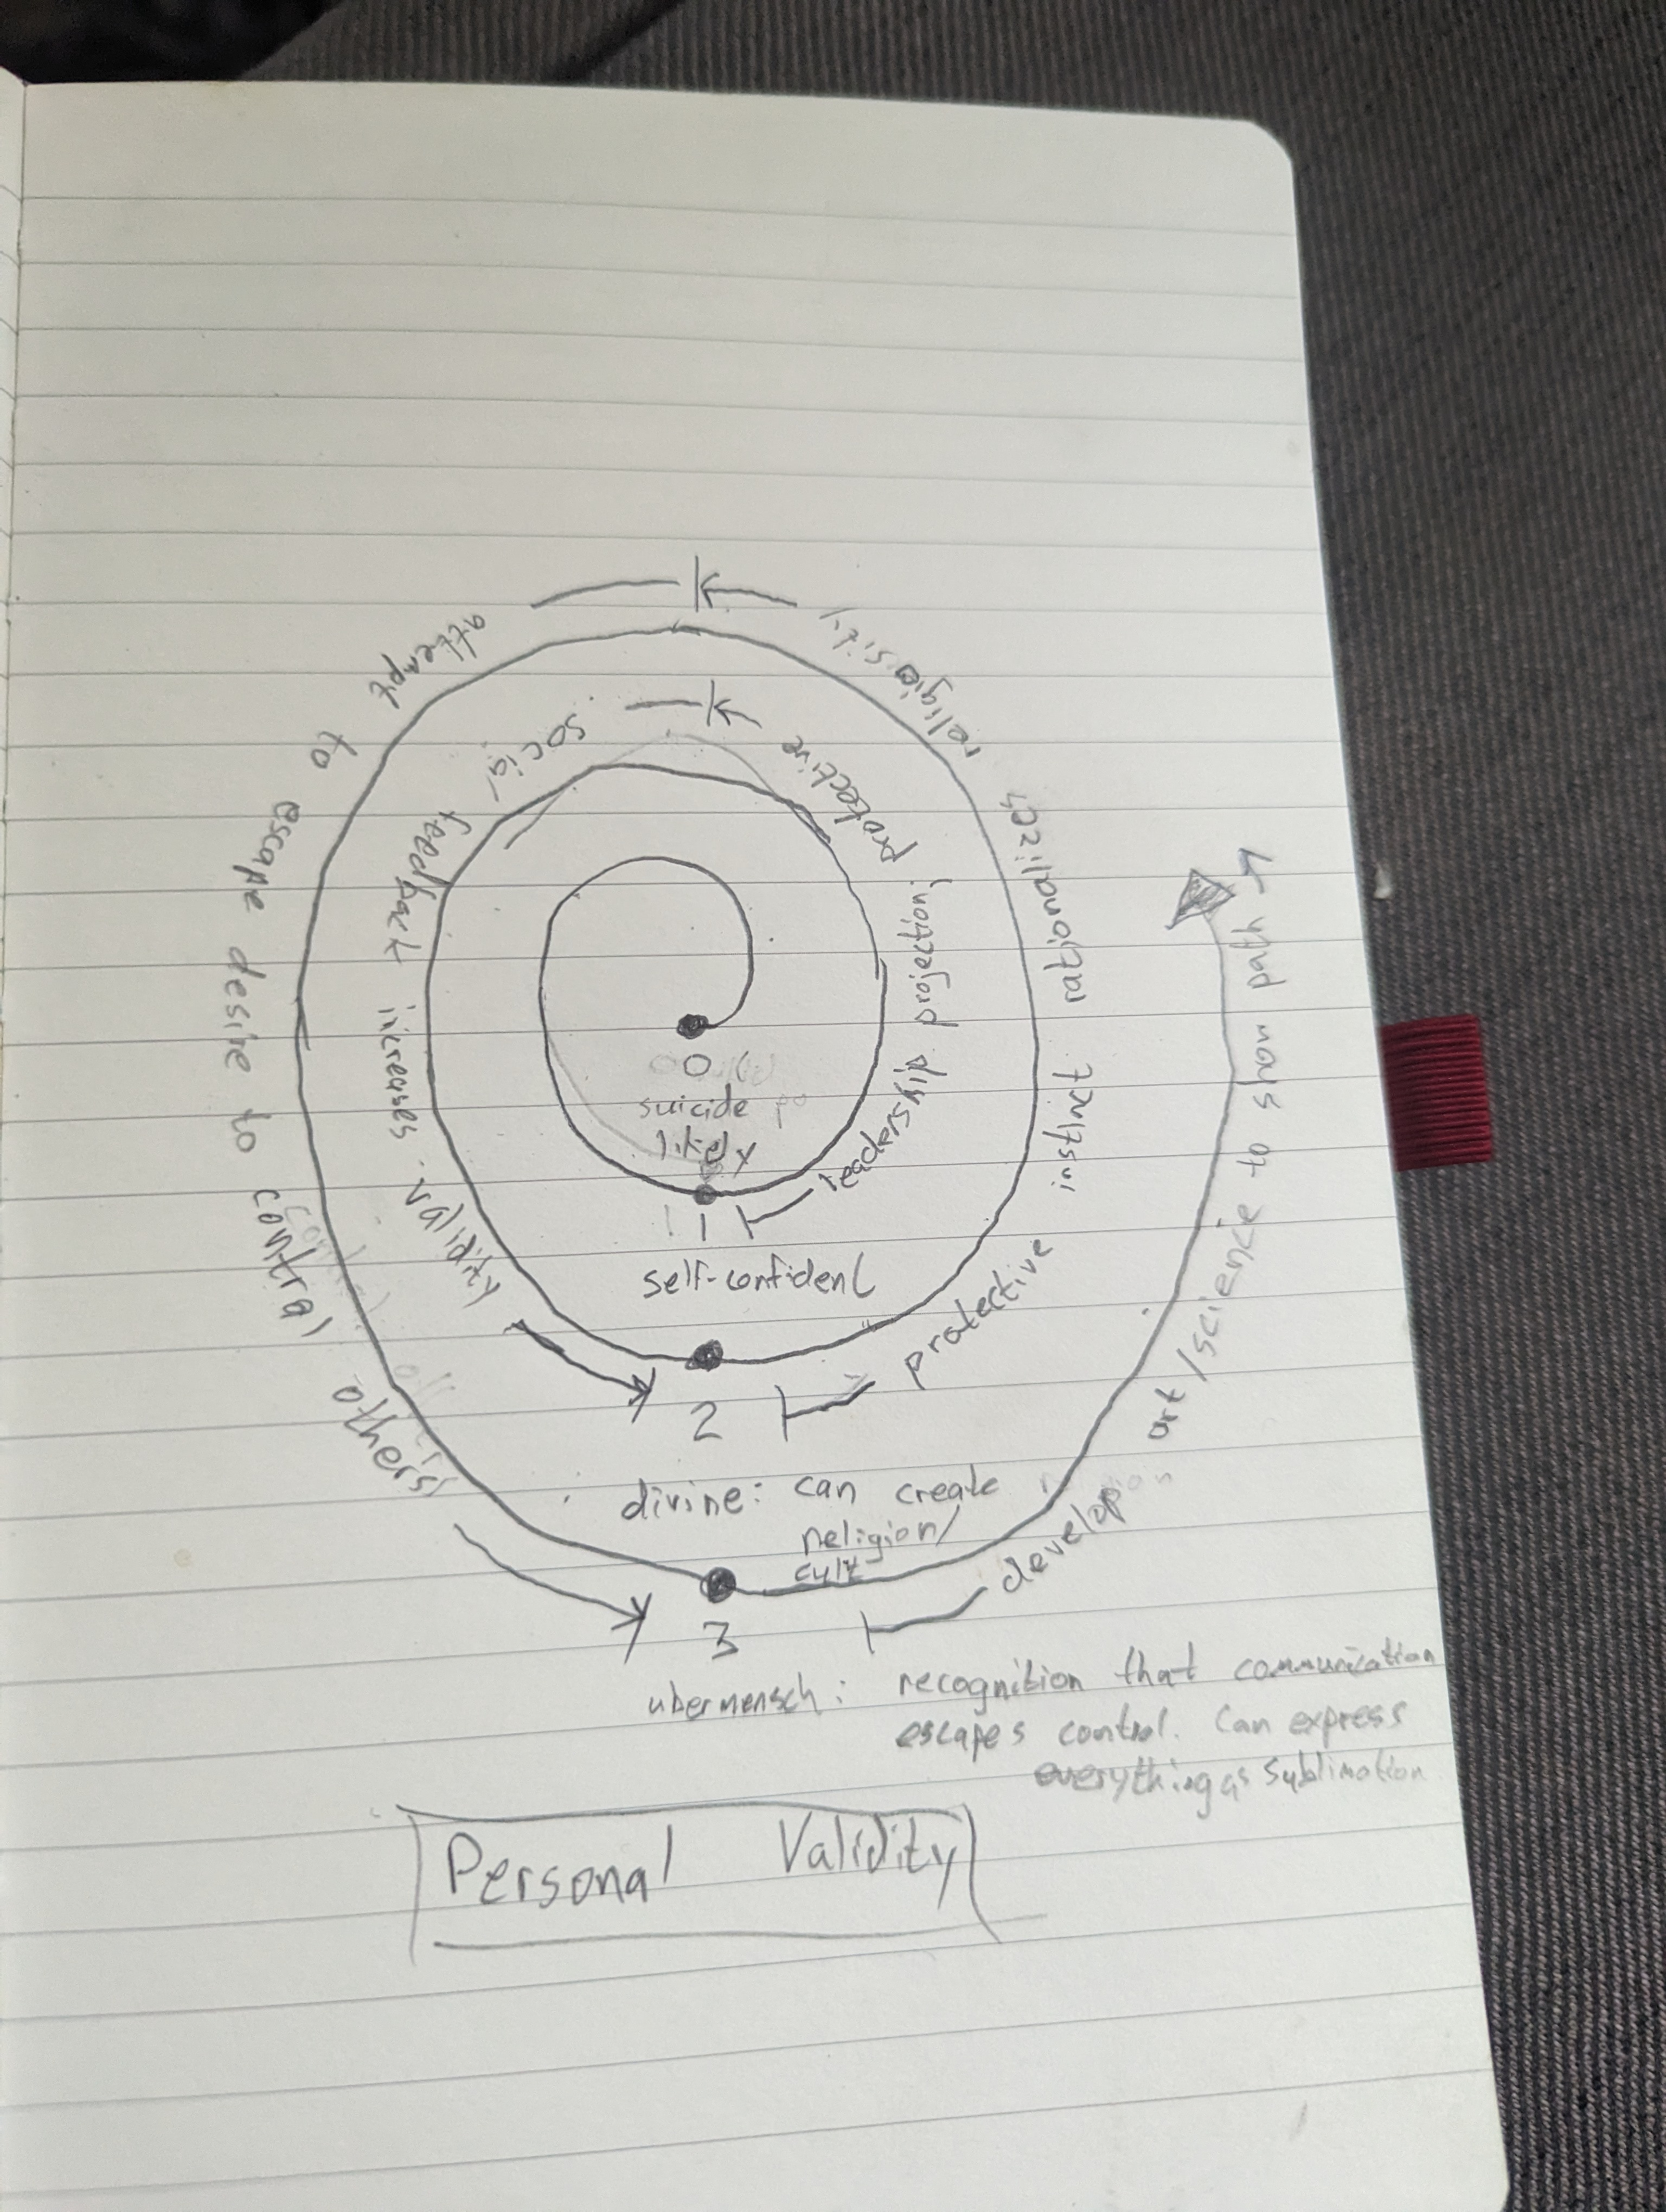 0
suicide
likely
1
self-confident
leadership projection; protective
social feedback increases validity
2
divine: can create
religion/
cult
protective instinct rationalizes religiosity
attempt to escape desire to control others
3
ubermensch: recognition that communication
escapes control. Can express
everything as sublimation
develop art/science to show path
Personal Validity